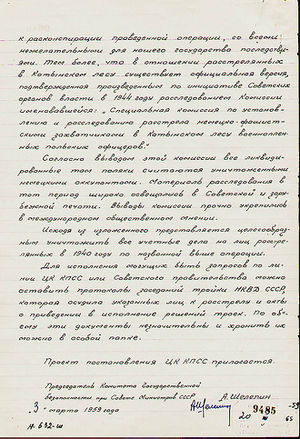 к расконспирации проведенной операции, со всеми
нежелательными для нашего государства последстви-
ями. Тем более, что в отношении расстрелянных
в Катынском лесу существует официальная версия,
подтвержденная произведенным по инициативе Советских
органов власти в 1944 году расследованием Комиссии
именовавшейся: „Специальная комиссия по установ-
лению и расследованию расстрела немецко-фашист-
скими захватчиками в Катынском лесу военноплен-
ных польских офицеров."
Согласно выводам этой комиссии все ликвиди-
рованные там поляки считаются уничтоженными
немецкими оккупантами. Материалы расследования в
тот период широко освещались в Советской и зару-
бежной печати. Выводы комиссии прочно укрепились
в международном общественном мнении.
Исходя из изложенного представляется целесообраз-
ным уничтожить все учетные дела на лиц расстре-
лянных в 1940 году по названной выше операции.
Для исполнения могущих быть запросов по ли-
нии ЦК КПСС или Советского правительства можно
оставить протоколы заседаний тройки НКВД СССР,
которая осудила указанных лиц к расстрелу и акты
о приведении в исполнение решений троек. По объ-
ему эти документы незначительны и хранить их
можно в особой папке.
Проект постановления ЦК КПСС прилагается.
Председатель Комитета Государственной
безопасности при Совете Министров СССР
А. Шелепин
3 марта 1959 года
Н-632-ш
9485
20
65